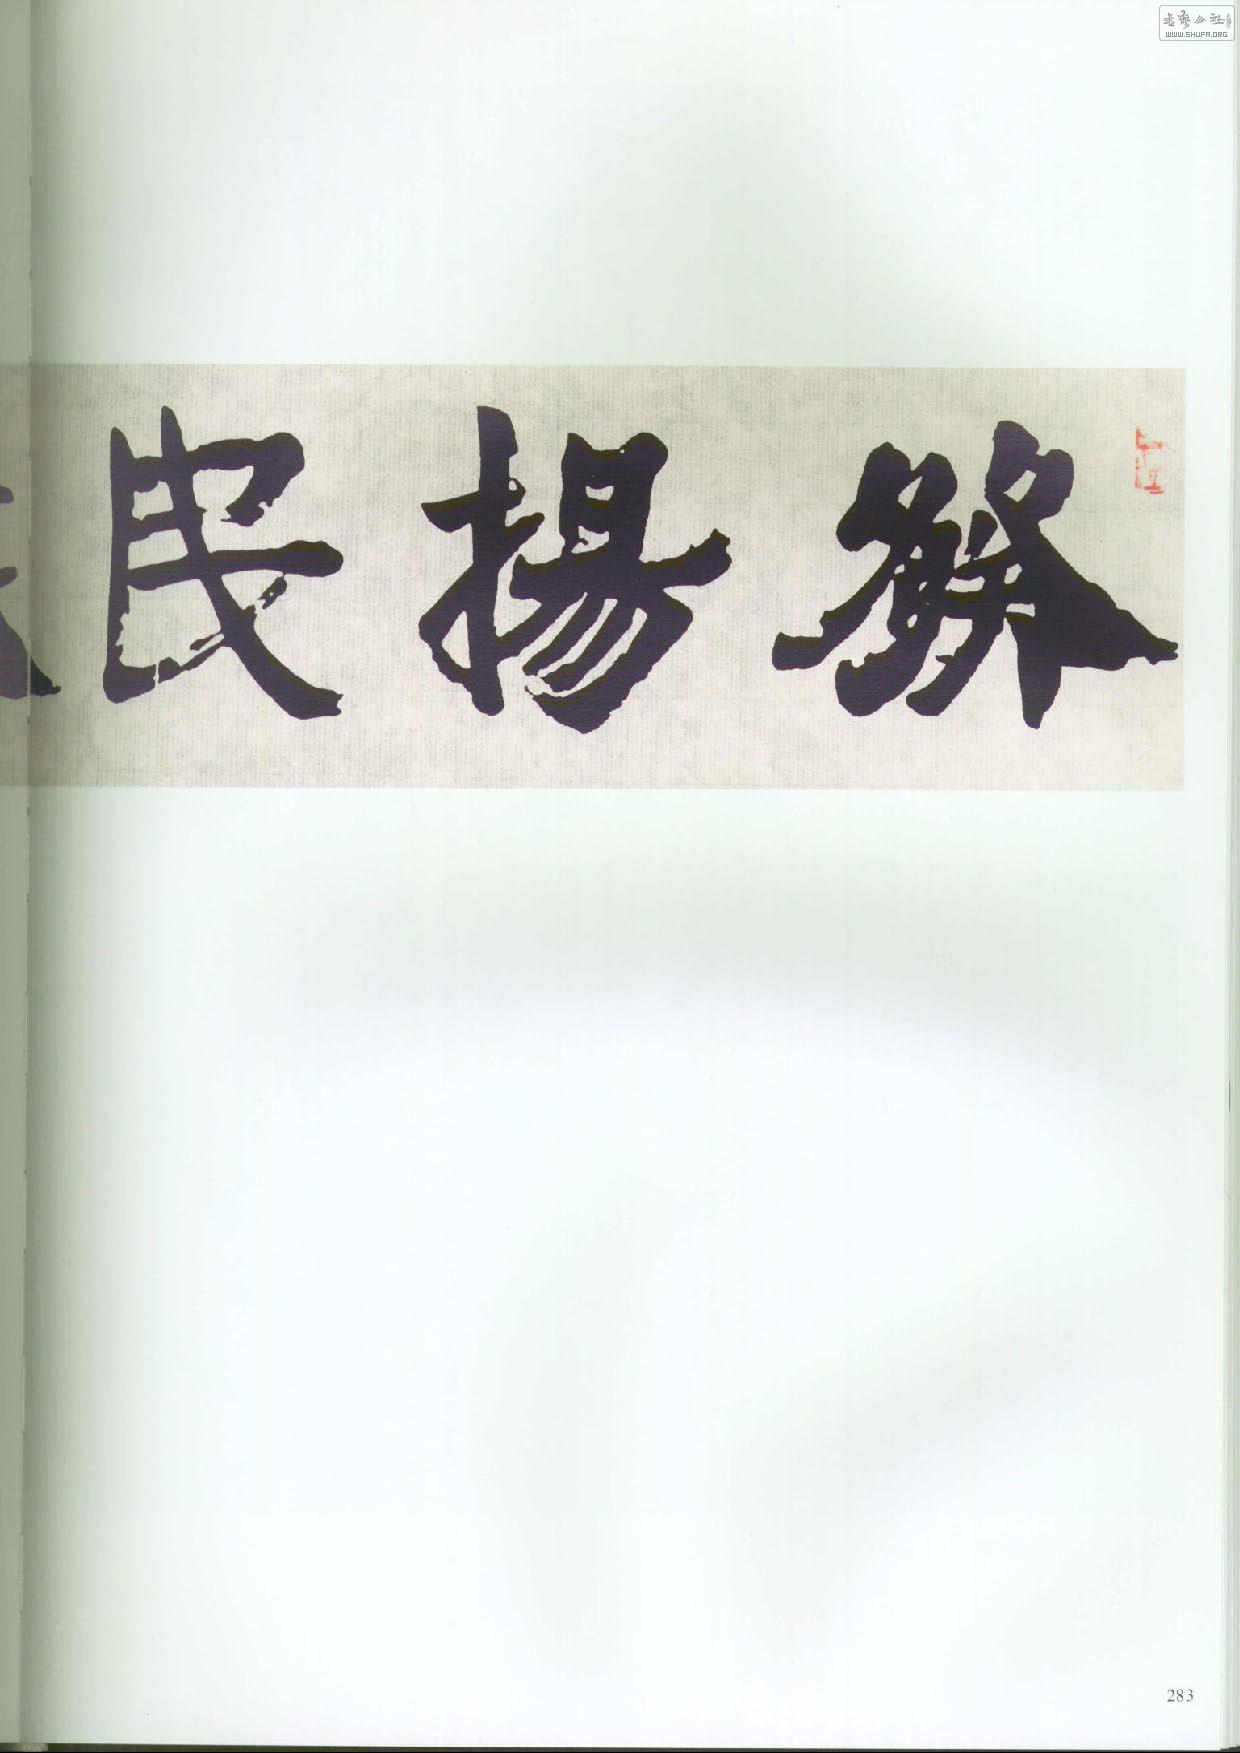 書藝公社
WWW.SHUFA.ORG
發揚民
283